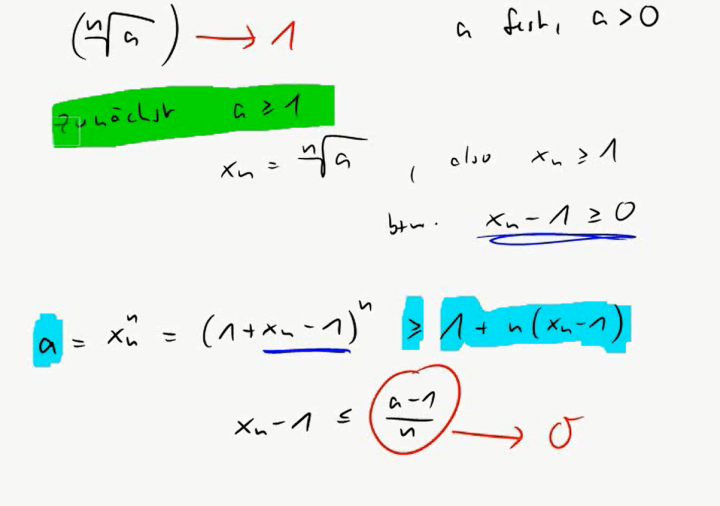 (ⁿ√a) → 1 a fest, a > 0
zunächst a ≥ 1
xₙ = ⁿ√a , also xₙ ≥ 1
bzw. xₙ − 1 ≥ 0
a = xₙⁿ = (1 + xₙ − 1)ⁿ ≥ 1 + n(xₙ − 1)
xₙ − 1 ≤ (a − 1)/n → 0